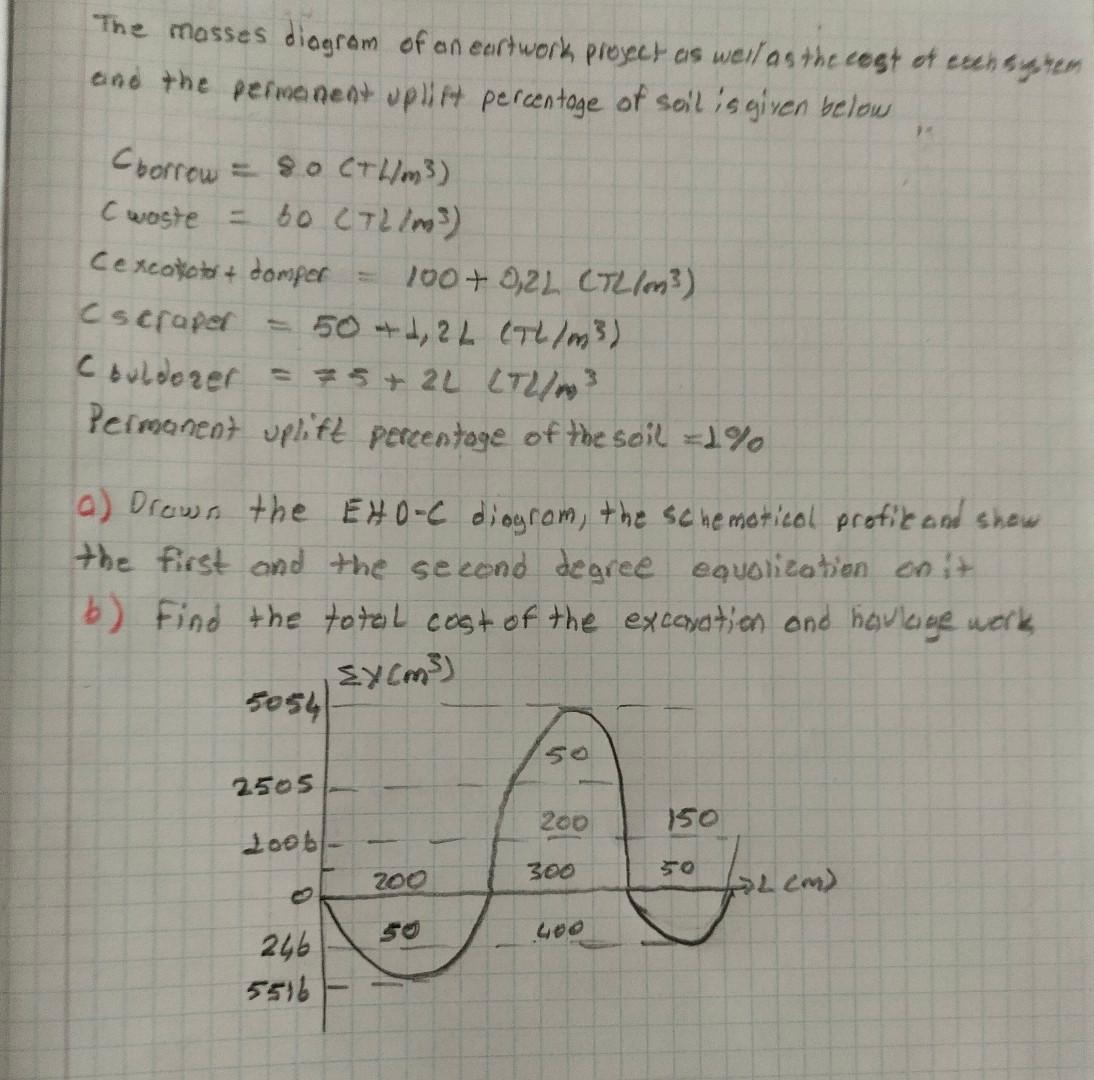 The masses diagram of an eartwork project as well as the cost of eech system
and the permanent uplift percentage of soil is given below
Cborrow = 80 (TL/m³)
Cwaste = 60 (TL/m³)
Cexcavator + damper = 100 + 0,2L (TL/m³)
Cscraper = 50 + 1,2L (TL/m³)
Cbuldozer = 75 + 2L (TL/m³
Permanent uplift percentage of the soil = 1%
a) Drawn the EHD-C diagram, the schematical profit and show
the first and the second degree equalization on it
b) Find the total cost of the excavation and haulage work
ΣV(m³)
5054
50
2505
200 150
1006
200 300 50
0 L (m)
50 400
246
5516